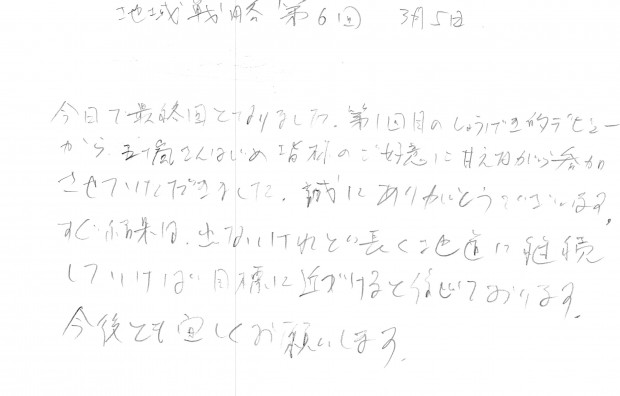 地域戦略 第6回 3月5日
今日で最終回となりました。第1回目のしょうげき的デビュー
から、五十嵐さんはじめ皆様のご好意に甘えながら参加
させていただきました。誠にありがとうございます。
すぐ結果は、出ないけれど長く地道に継続
していけば目標に近づけると信じております。
今後とも宜しくお願いします。